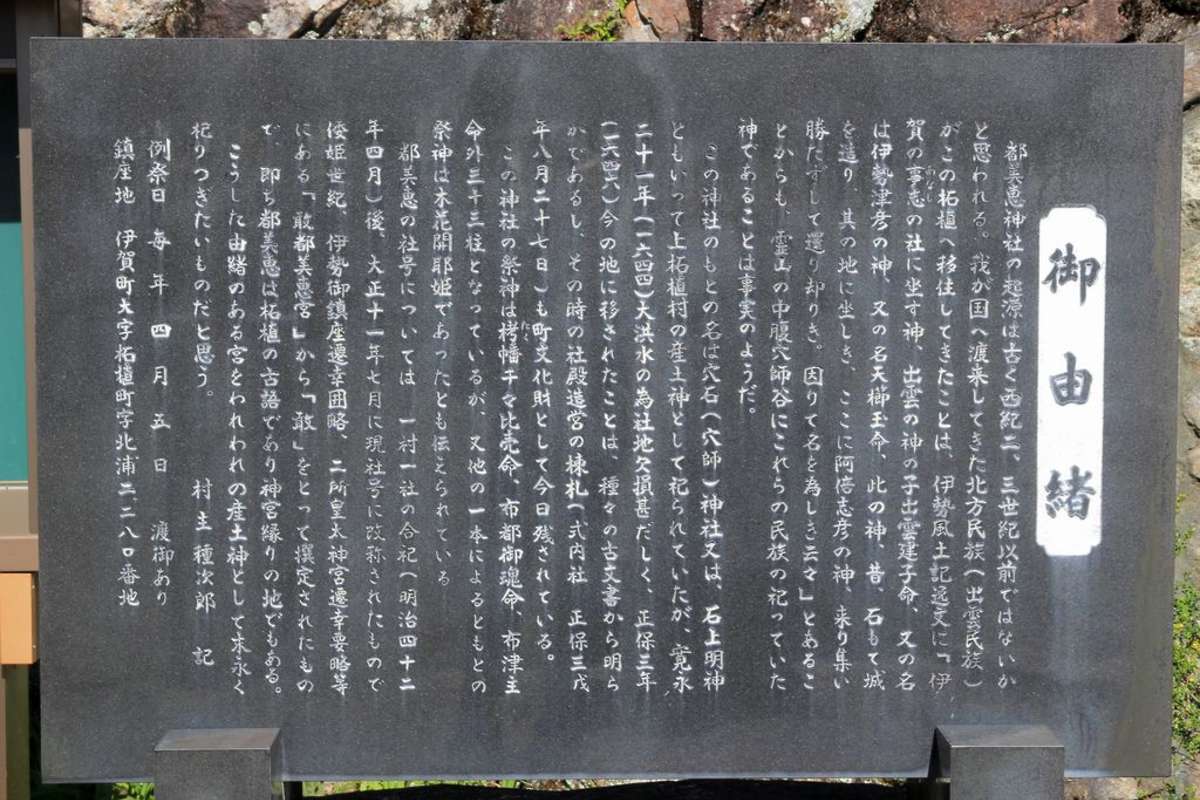 御由緒
都美恵神社の起源は古く西紀二、三世紀以前ではないか
と思われる。我が国へ渡来してきた北方民族(出雲民族)
がこの柘植へ移住してきたことは、伊勢風土記逸文に「伊
賀の事志の社に坐す神、出雲の神の子出雲建子命、又の名
あなし
は伊勢津彦の神、又の名天櫛玉命、此の神、昔、石もて城
を造り、其の地に坐しき、ここに阿倍志彦の神、来り集い
勝たずして還り却りき。因りて名を為しき云々」とあるこ
とからも、霊山の中腹穴師谷にこれらの民族の祀っていた
神であることは事実のようだ。
この神社のもとの名は穴石(穴師)神社又は、石上明神
ともいって上柘植村の産土神として祀られていたが、寛永
二十一年(一六四四)大洪水の為社地欠損甚だしく、正保三年
(一六四六)今の地に移されたことは、種々の古文書から明ら
かであるし、その時の社殿造営の棟札(式内社 正保三戌
年八月二十七日)も町文化財として今日残されている。
この神社の祭神は栲幡千々比売命、布都御魂命、布津主
たく
命外三十三柱となっているが、又他の一本によるともとの
祭神は木花開耶姫であったとも伝えられている
都美恵の社号については 一村一社の合祀(明治四十二
年四月)後、大正十一年七月に現社号に改称されたもので
倭姫世紀、伊勢御鎮座遷幸囲略、二所皇太神宮遷幸要略等
にある「敢都美恵宮」から「敢」をとって撰定されたもの
で、即ち都美恵は柘植の古語であり神宮縁りの地でもある。
こうした由緒のある宮をわれわれの産土神として末永く
祀りつぎたいものだと思う。 村主種次郎 記
例祭日 毎年四月五日 渡御あり
鎮座地 伊賀町大字柘植町字北浦二二八〇番地